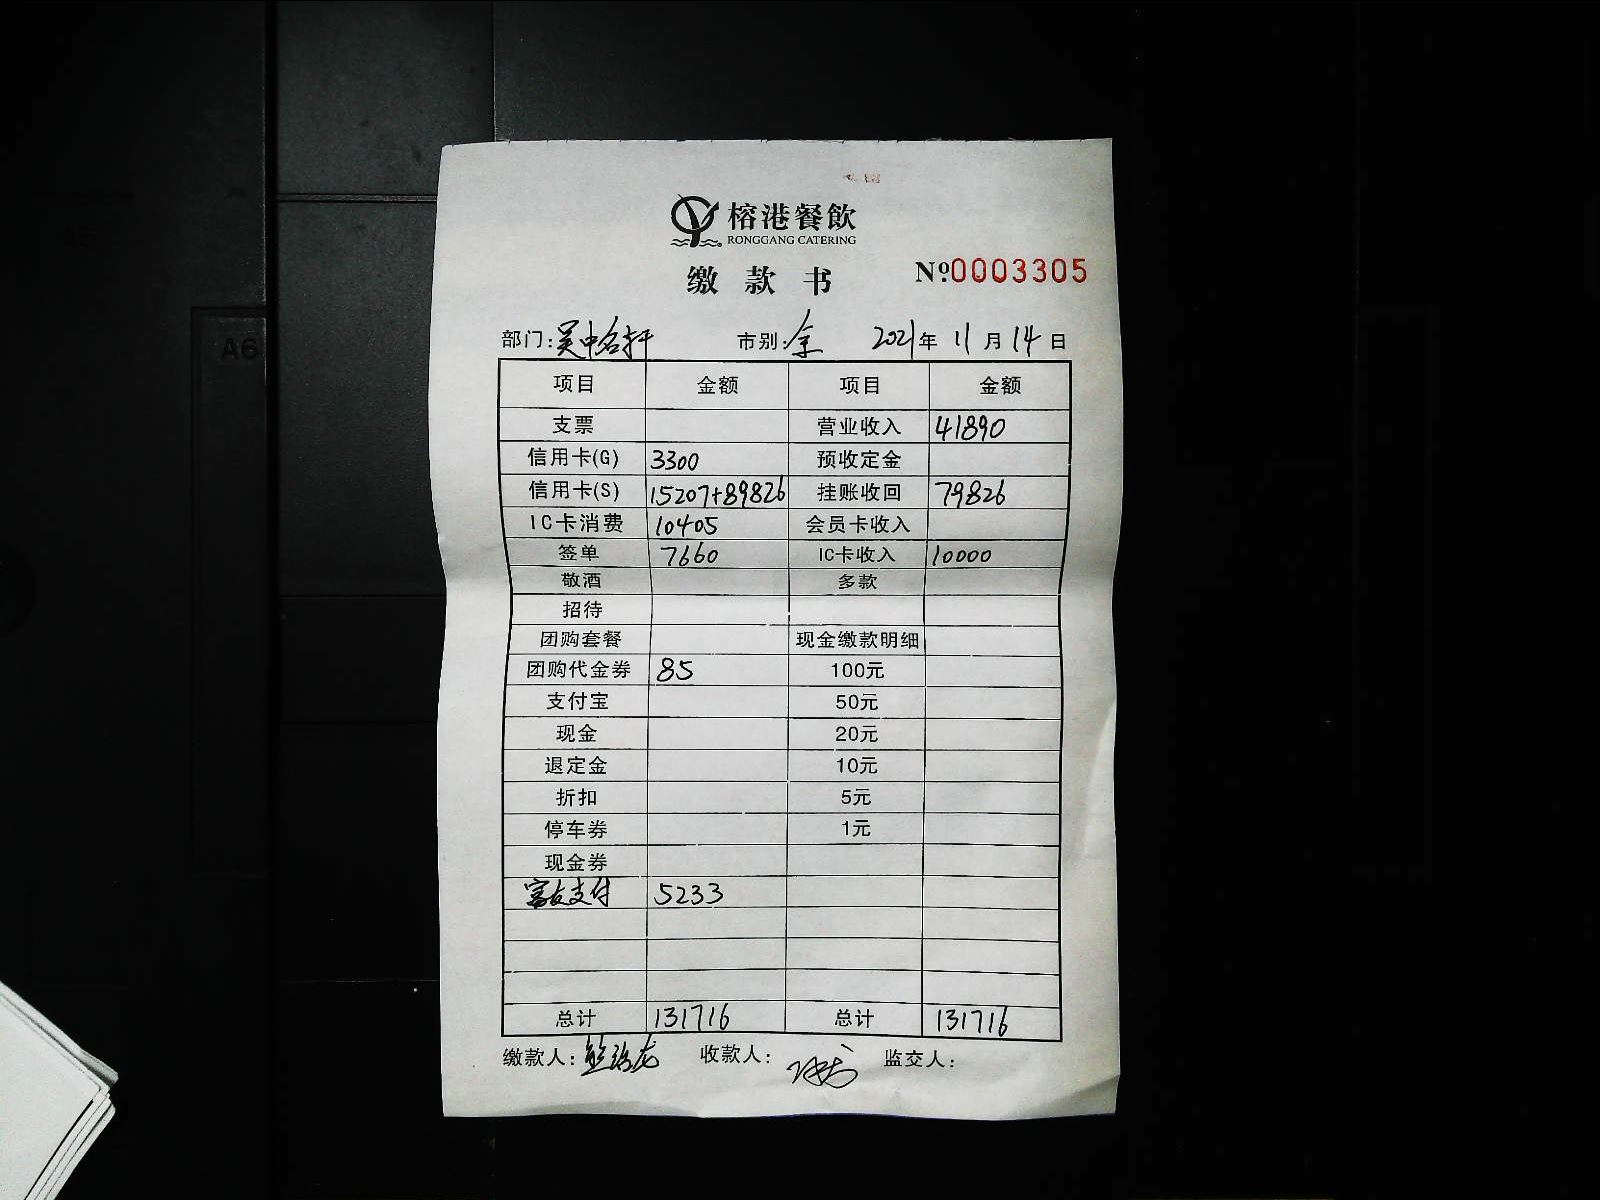 榕港餐飲
RONGGANG CATERING
缴款书 №0003305
部门:吴中名轩 市别:全 2021年11月14日
项目 金额 项目 金额
支票 营业收入 41890
信用卡(G) 3300 预收定金
信用卡(S) 15207+89826 挂账收回 79826
IC卡消费 10405 会员卡收入
签单 7660 IC卡收入 10000
敬酒 多款
招待
团购套餐 现金缴款明细
团购代金券 85 100元
支付宝 50元
现金 20元
退定金 10元
折扣 5元
停车券 1元
现金券
富友支付 5233
总计 131716 总计 131716
缴款人: 收款人: 监交人:
A6